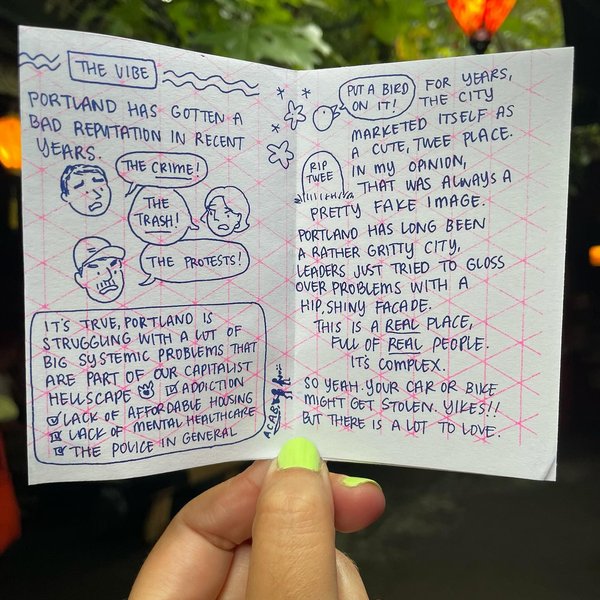 THE VIBE
PORTLAND HAS GOTTEN A
BAD REPUTATION IN RECENT
YEARS.
THE CRIME!
THE
TRASH!
THE PROTESTS!
IT'S TRUE, PORTLAND IS
STRUGGLING WITH A LOT OF
BIG SYSTEMIC PROBLEMS THAT
ARE PART OF OUR CAPITALIST
HELLSCAPE ADDICTION
LACK OF AFFORDABLE HOUSING
LACK OF MENTAL HEALTHCARE
THE POLICE IN GENERAL
PUT A BIRD
ON IT!
FOR YEARS,
THE CITY
MARKETED ITSELF AS
A CUTE, TWEE PLACE.
RIP
TWEE
IN MY OPINION,
THAT WAS ALWAYS A
PRETTY FAKE IMAGE.
PORTLAND HAS LONG BEEN
A RATHER GRITTY CITY,
LEADERS JUST TRIED TO GLOSS
OVER PROBLEMS WITH A
HIP, SHINY FACADE.
THIS IS A REAL PLACE,
FULL OF REAL PEOPLE.
IT'S COMPLEX.
SO YEAH. YOUR CAR OR BIKE
MIGHT GET STOLEN. YIKES!!
BUT THERE IS A LOT TO LOVE.